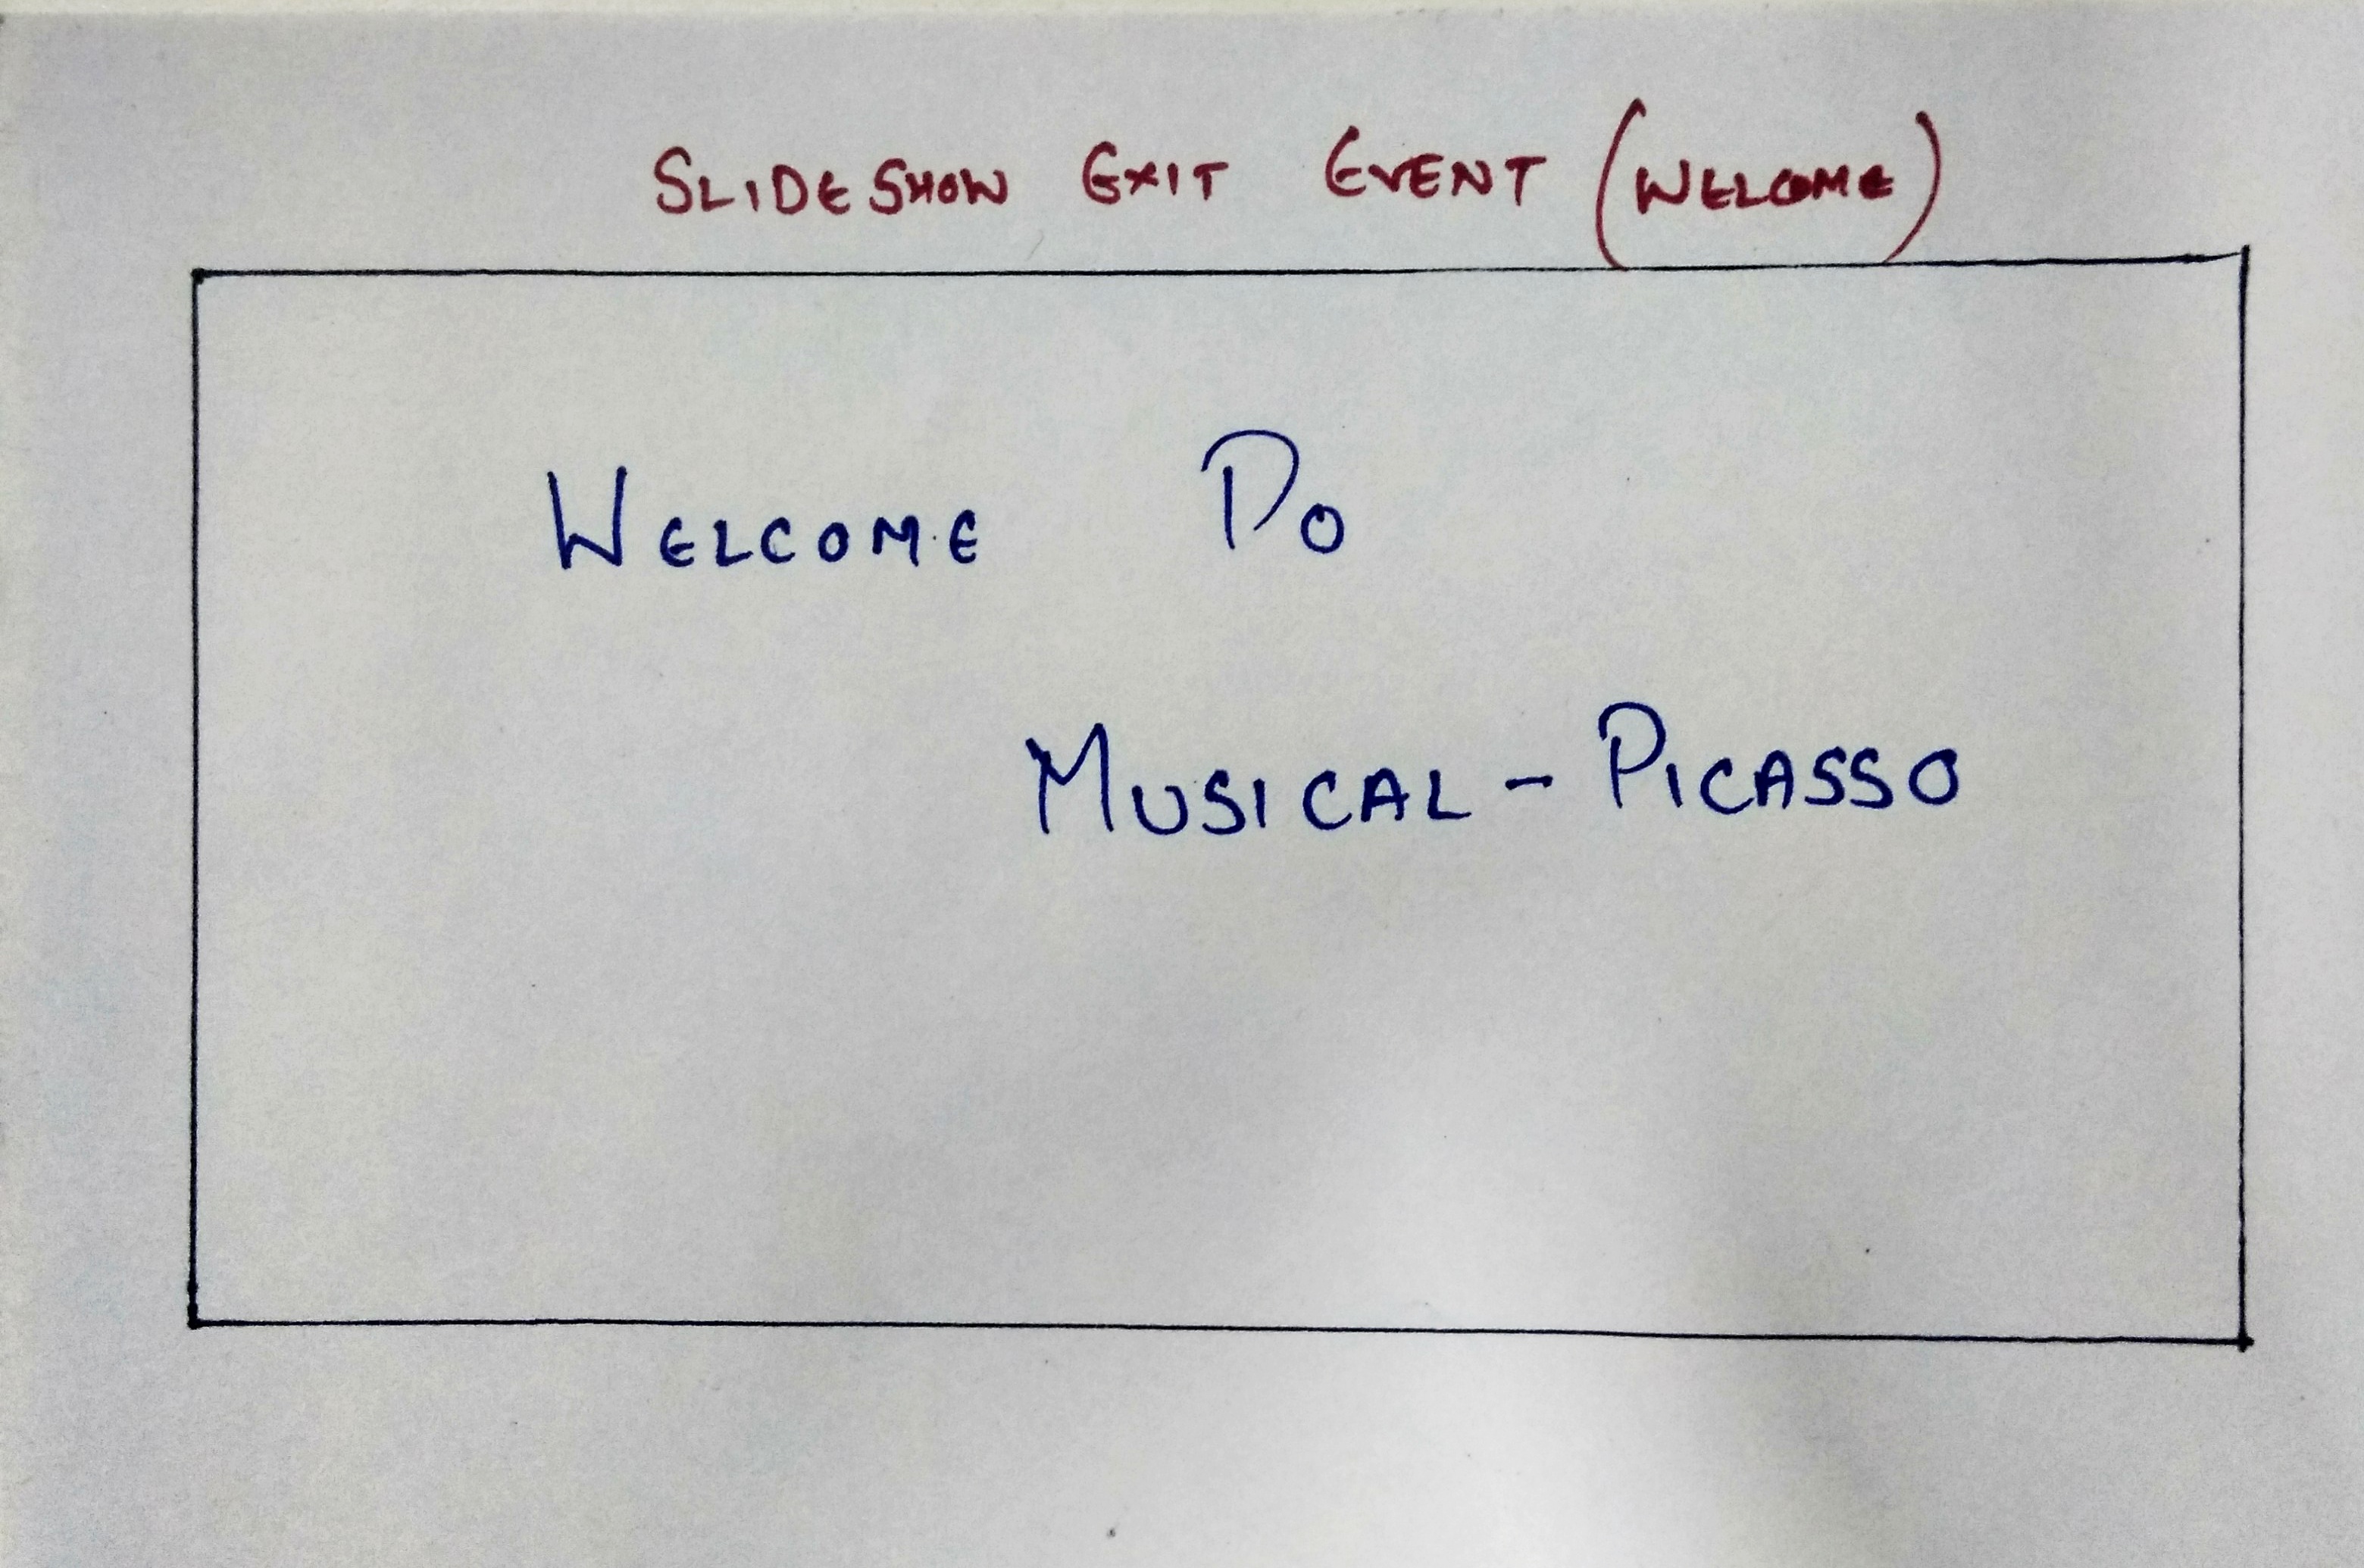 SLIDESHOW EXIT EVENT (WELCOME)
WELCOME DO
MUSICAL - PICASSO